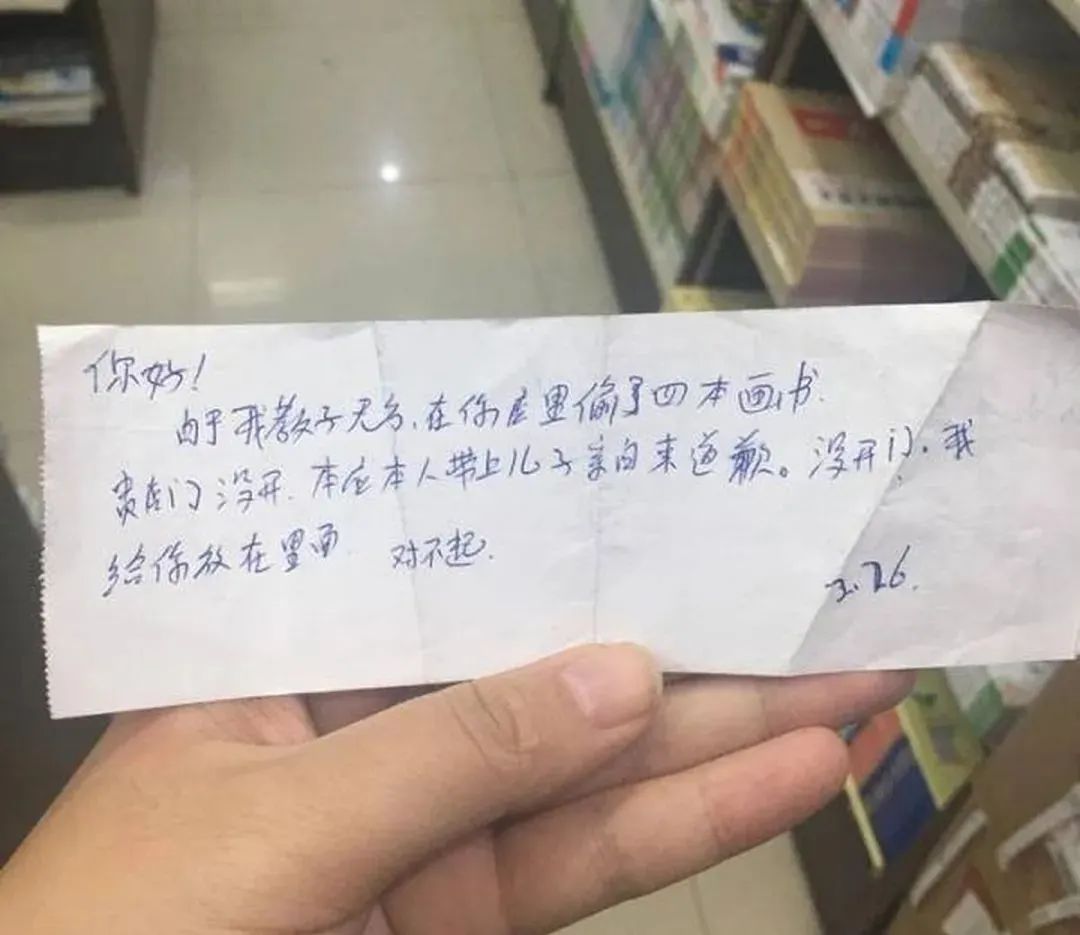 你好！
由于我教子无方，在你店里偷了四本画书.
贵店门没开.本应本人带上儿子亲自来道歉。没开门.我
给你放在里面. 对不起.
2.26.